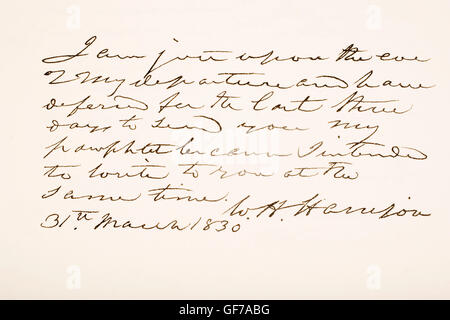 I am just upon the eve
of my departure and have
defered for the last three
days to send you my
pamphlet because I intended
to write to you at the
same time.
W. H. Harrison
31st. March 1830
alamy stock photo
GF7ABG
www.alamy.com